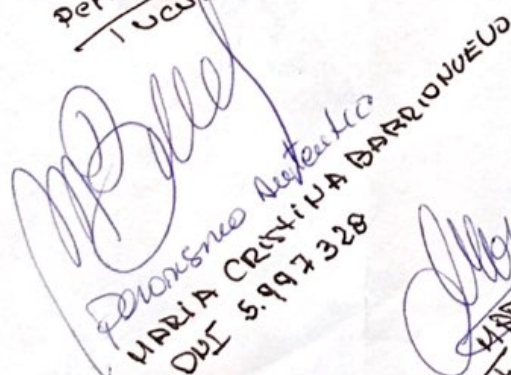 Per
Tucu
Peronismo Autentico
MARIA CRISTINA BARRIONUEVO
DNI 5.997.328
MAR